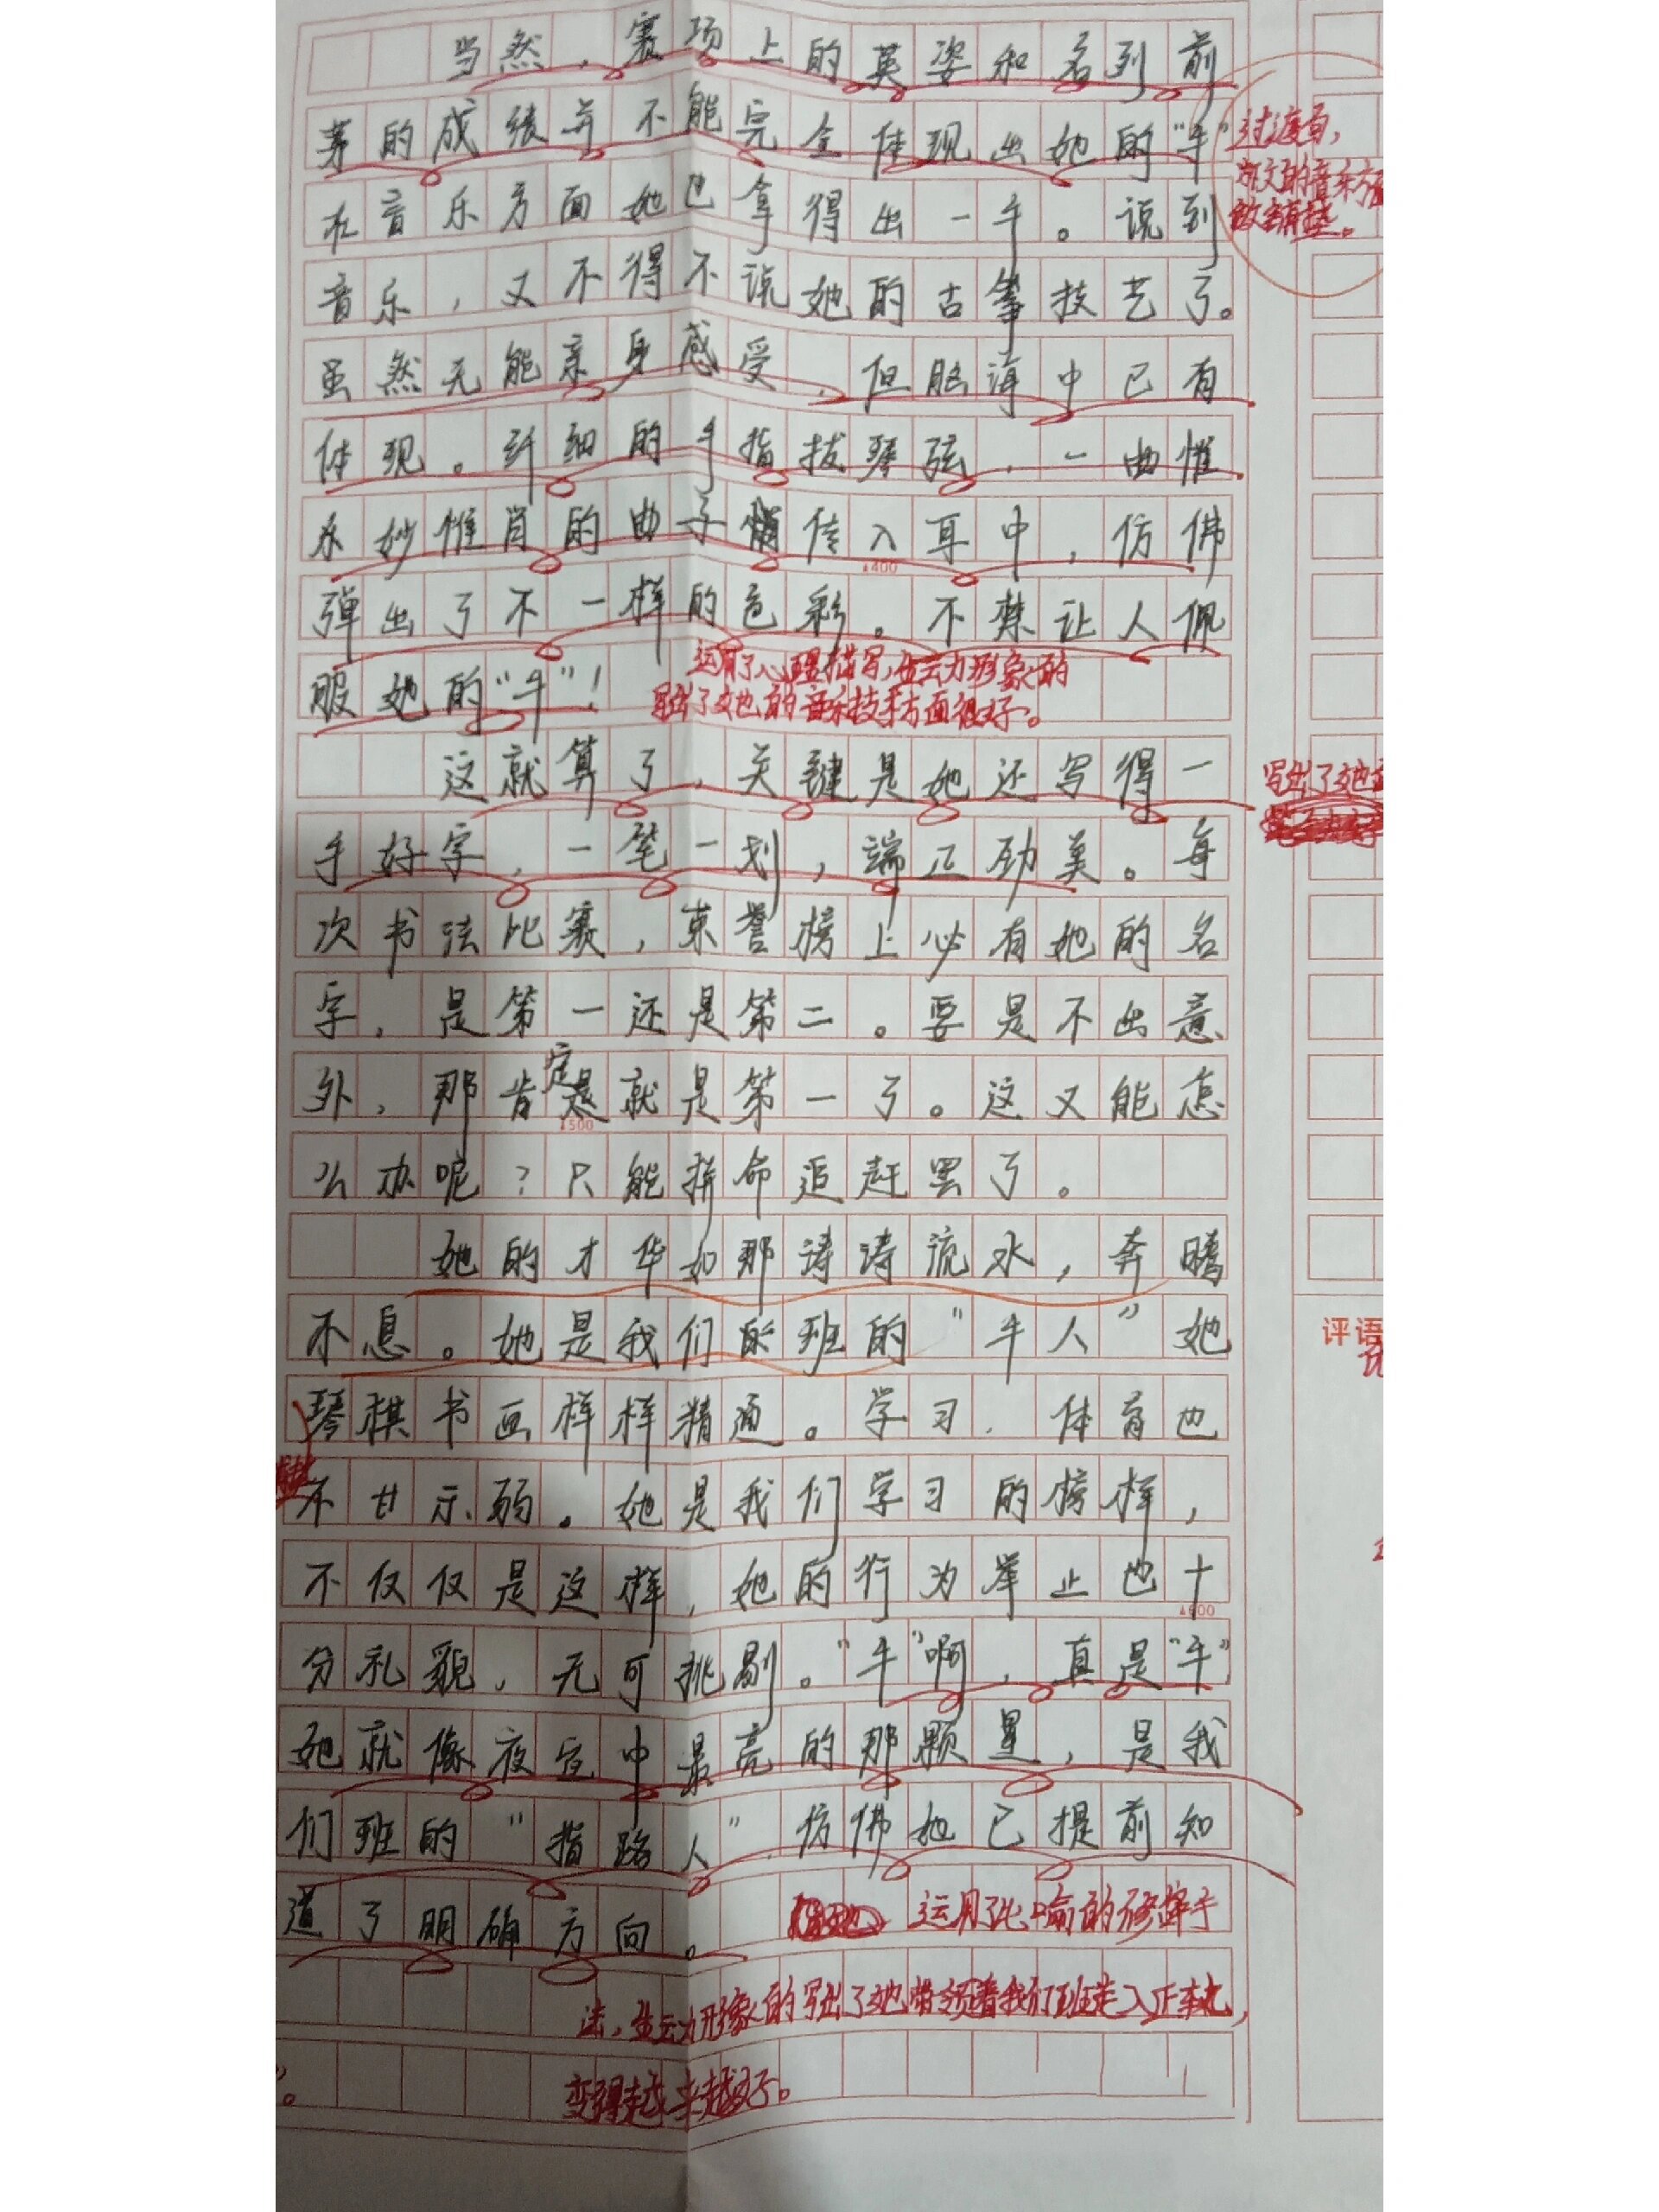 当然，赛场上的英姿和名列前
茅的成绩并不能完全体现出她的“牛”
过渡句，
为下文的音乐方面
做铺垫。
在音乐方面她也拿得出一手。说到
音乐，又不得不说她的古筝技艺了。
虽然无能亲身感受，但脑海中已有
体现。纤细的手指拔琴弦，一曲惟
妙惟肖的曲子传入耳中，仿佛
弹出了不一样的色彩。不禁让人佩
服她的“牛”！
运用了心理描写，生动形象的
写出了她的音乐技术方面很好。
这就算了，关键是她还写得一
写出了她
手好字，一笔一划，端正劲美。每
次书法比赛，荣誉榜上必有她的名
字，是第一还是第二。要是不出意
外，那肯定就是第一了。这又能怎
么办呢？只能拼命追赶罢了。
▲400
▲500
她的才华如那涛涛流水，奔腾
不息。她是我们的班的“牛人”她
评语
琴棋书画样样精通。学习，体育也
不甘示弱。她是我们学习的榜样，
不仅仅是这样，她的行为举止也十
▲600
分礼貌，无可挑剔。“牛”啊，真是“牛”
她就像夜空中最亮的那颗星，是我
们班的“指路人”仿佛她已提前知
道了明确方向。
运用了比喻的修辞手
法，生动形象的写出了她带领着我们班走入正轨，
变得越来越好。